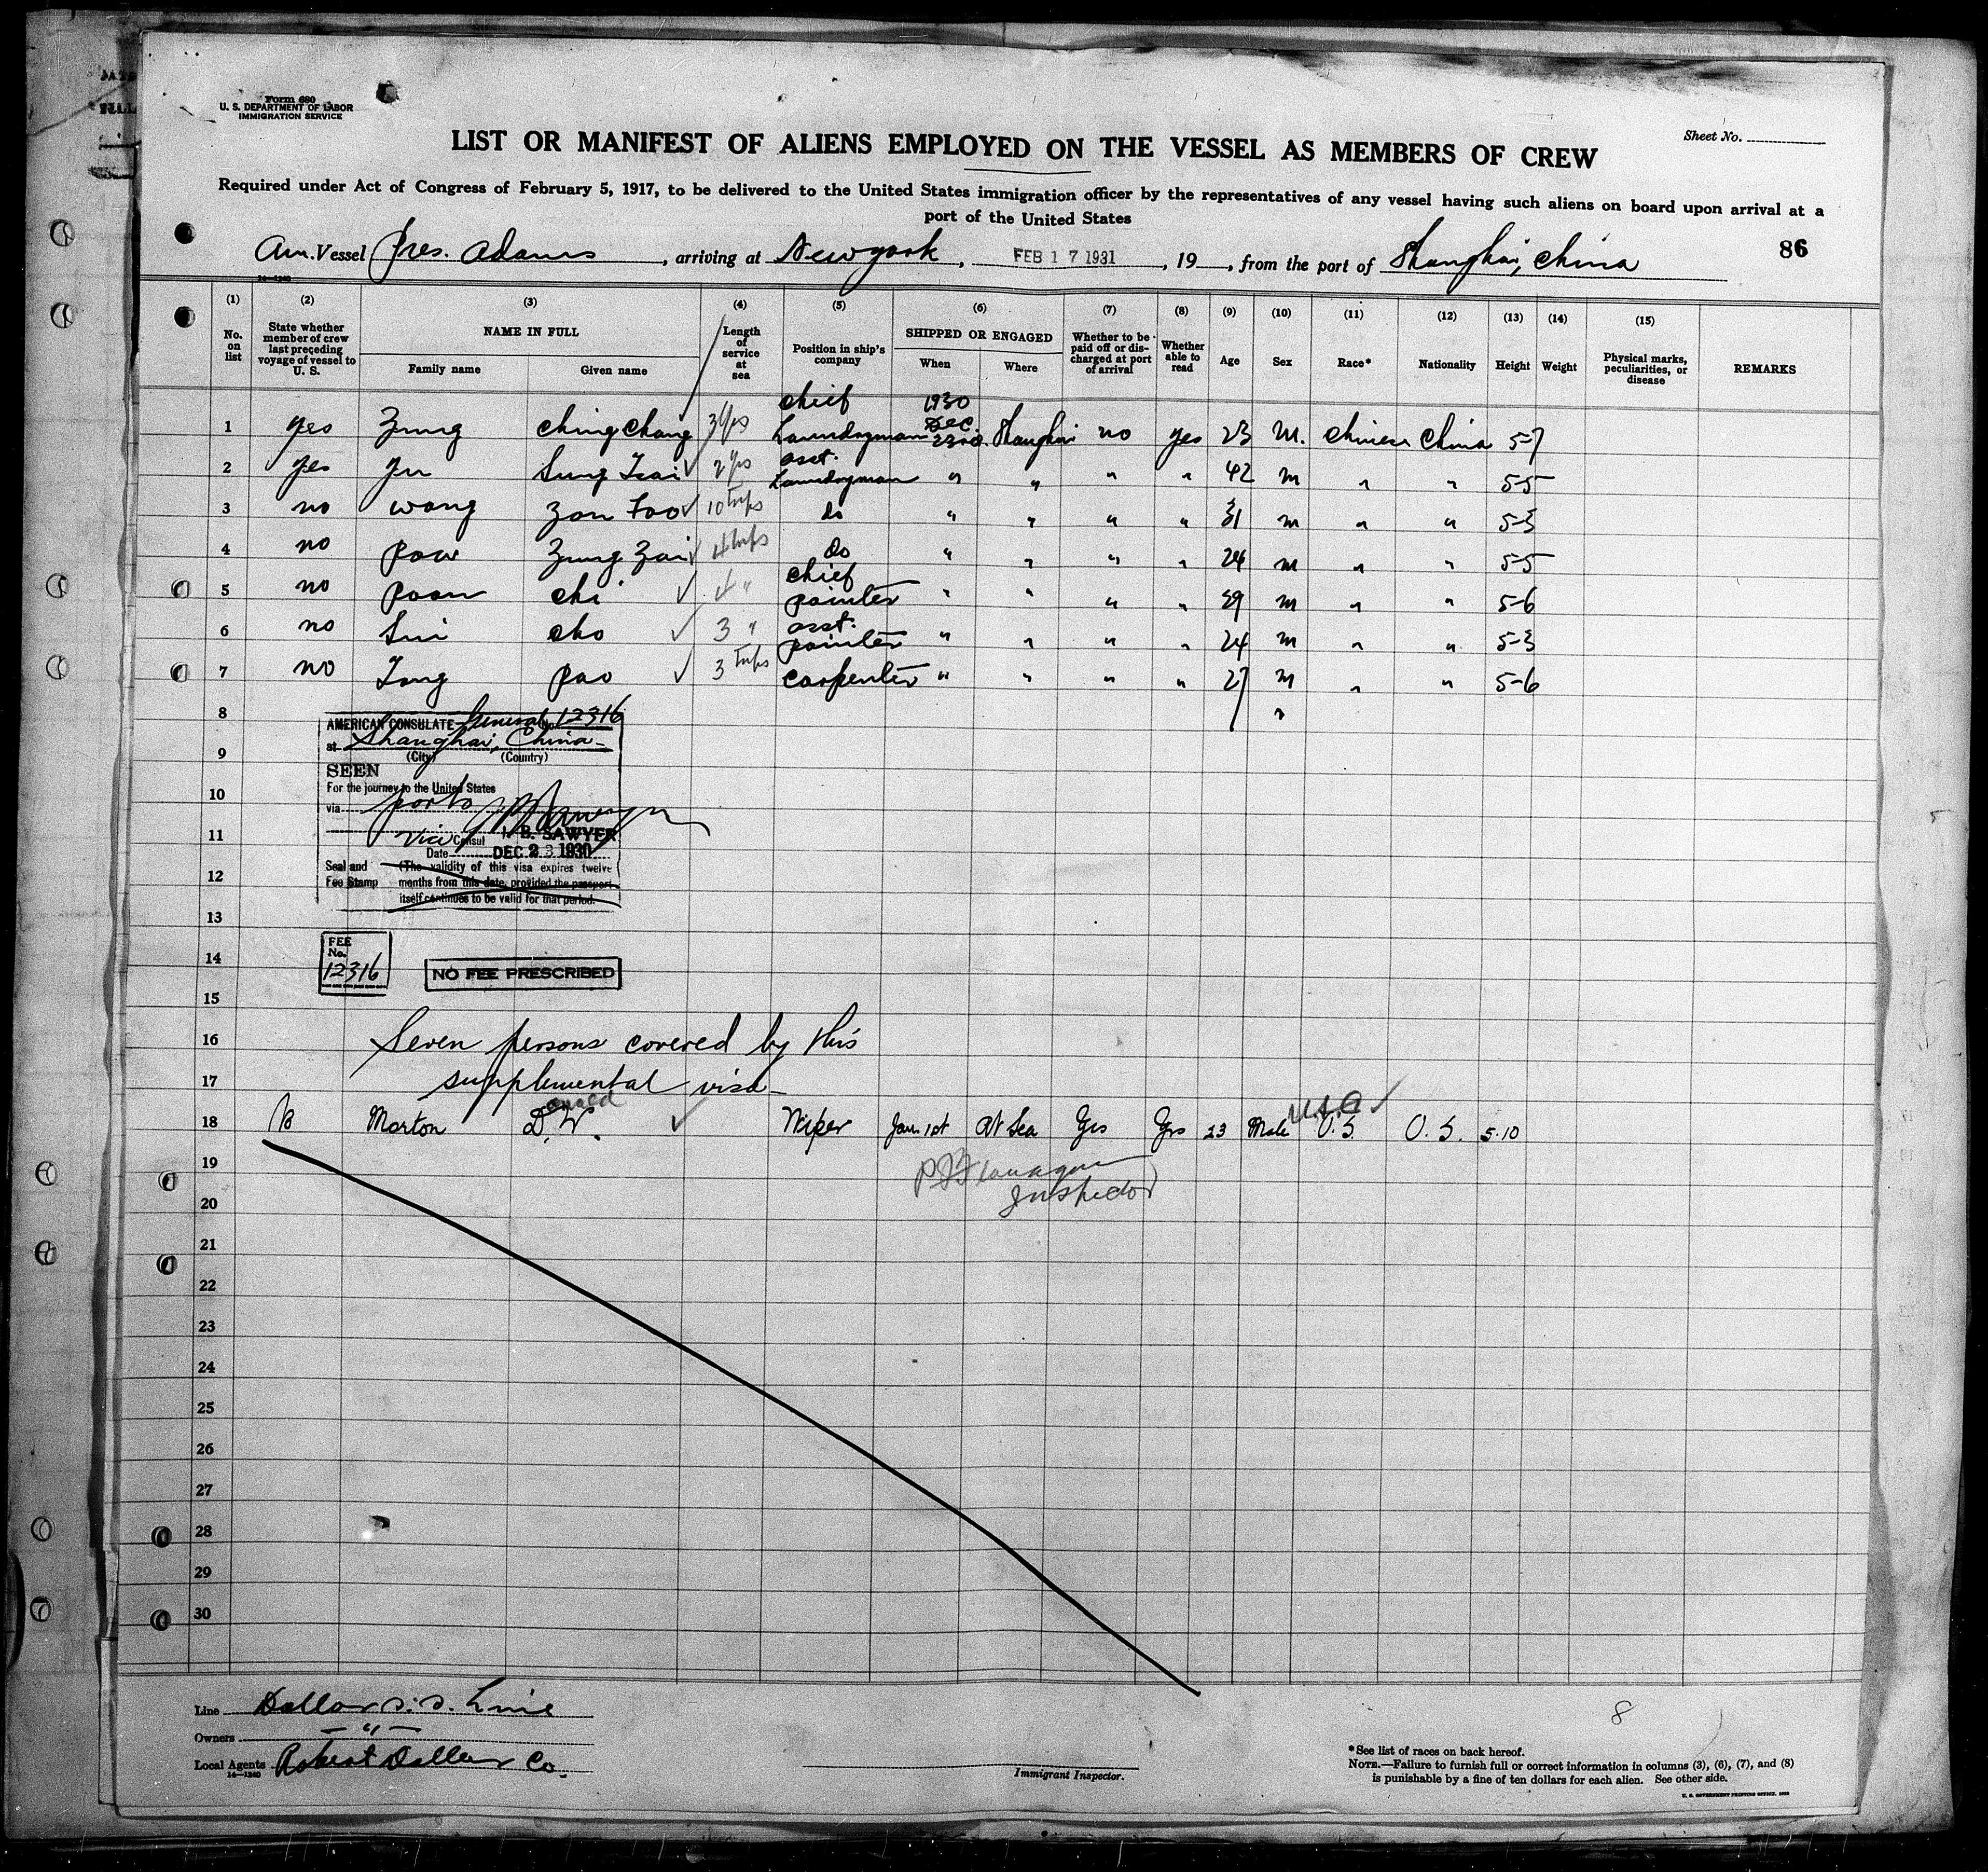 Form 680
U. S. DEPARTMENT OF LABOR
IMMIGRATION SERVICE
Sheet No.
LIST OR MANIFEST OF ALIENS EMPLOYED ON THE VESSEL AS MEMBERS OF CREW
Required under Act of Congress of February 5, 1917, to be delivered to the United States immigration officer by the representatives of any vessel having such aliens on board upon arrival at a
port of the United States
86
Am. Vessel Pres. Adams, arriving at New york, FEB 17 1931, 19, from the port of Shanghai, China
14-1240
(1) (2) (3) (4) (5) (6) (7) (8) (9) (10) (11) (12) (13) (14) (15)
No. on list State whether member of crew last preceding voyage of vessel to U. S. NAME IN FULL Length of service at sea Position in ship's company SHIPPED OR ENGAGED Whether to be paid off or discharged at port of arrival Whether able to read Age Sex Race* Nationality Height Weight Physical marks, peculiarities, or disease REMARKS
Family name Given name When Where
1 yes Zung Ching Chang 3 yrs chief Laundryman 1930 Dec. 23rd. Shanghai no yes 23 M. Chinese China 5-7
2 yes Yu Sung Tsai ✓ 2 yrs asst. Laundryman " " " " 42 m " " 5-5
3 no Wong Zan Foo ✓ 10 trips do " " " " 31 m " " 5-3
4 no Pow Zung Zai ✓ 4 trips do " " " " 24 m " " 5-5
5 no Poan Chi ✓ 4 " chief painter " " " " 39 m " " 5-6
6 no Sui Cho ✓ 3 " asst. painter " " " " 24 m " " 5-3
7 no Tong Pao ✓ 3 trips carpenter " " " " 27 m " " 5-6
8 "
AMERICAN CONSULATE General No. 12316
at Shanghai, China
9
(City) (Country)
SEEN
For the journey to the United States
10
via ports
11
Vice Consul B. SAWYER
Date DEC 23 1930
Seal and Fee Stamp
(The validity of this visa expires twelve
12
months from this date, provided the passport
itself continues to be valid for that period.
13
FEE No. 12316
14
NO FEE PRESCRIBED
15
16 Seven persons covered by this
17 supplemental visa
18 Morton D. W. onald ✓ Wiper Jan. 1st At Sea Yes Yes 23 Male U.S. U.S.A ✓ U.S. 5-10
19 P J Flanagan
20 Inspector
21
22
23
24
25
26
27
28
29
30
Line Dollar S. S. Line
Owners — " —
Local Agents Robert Dollar Co.
14-1240
Immigrant Inspector.
8
*See list of races on back hereof.
NOTE.—Failure to furnish full or correct information in columns (3), (6), (7), and (8)
is punishable by a fine of ten dollars for each alien. See other side.
U. S. GOVERNMENT PRINTING OFFICE